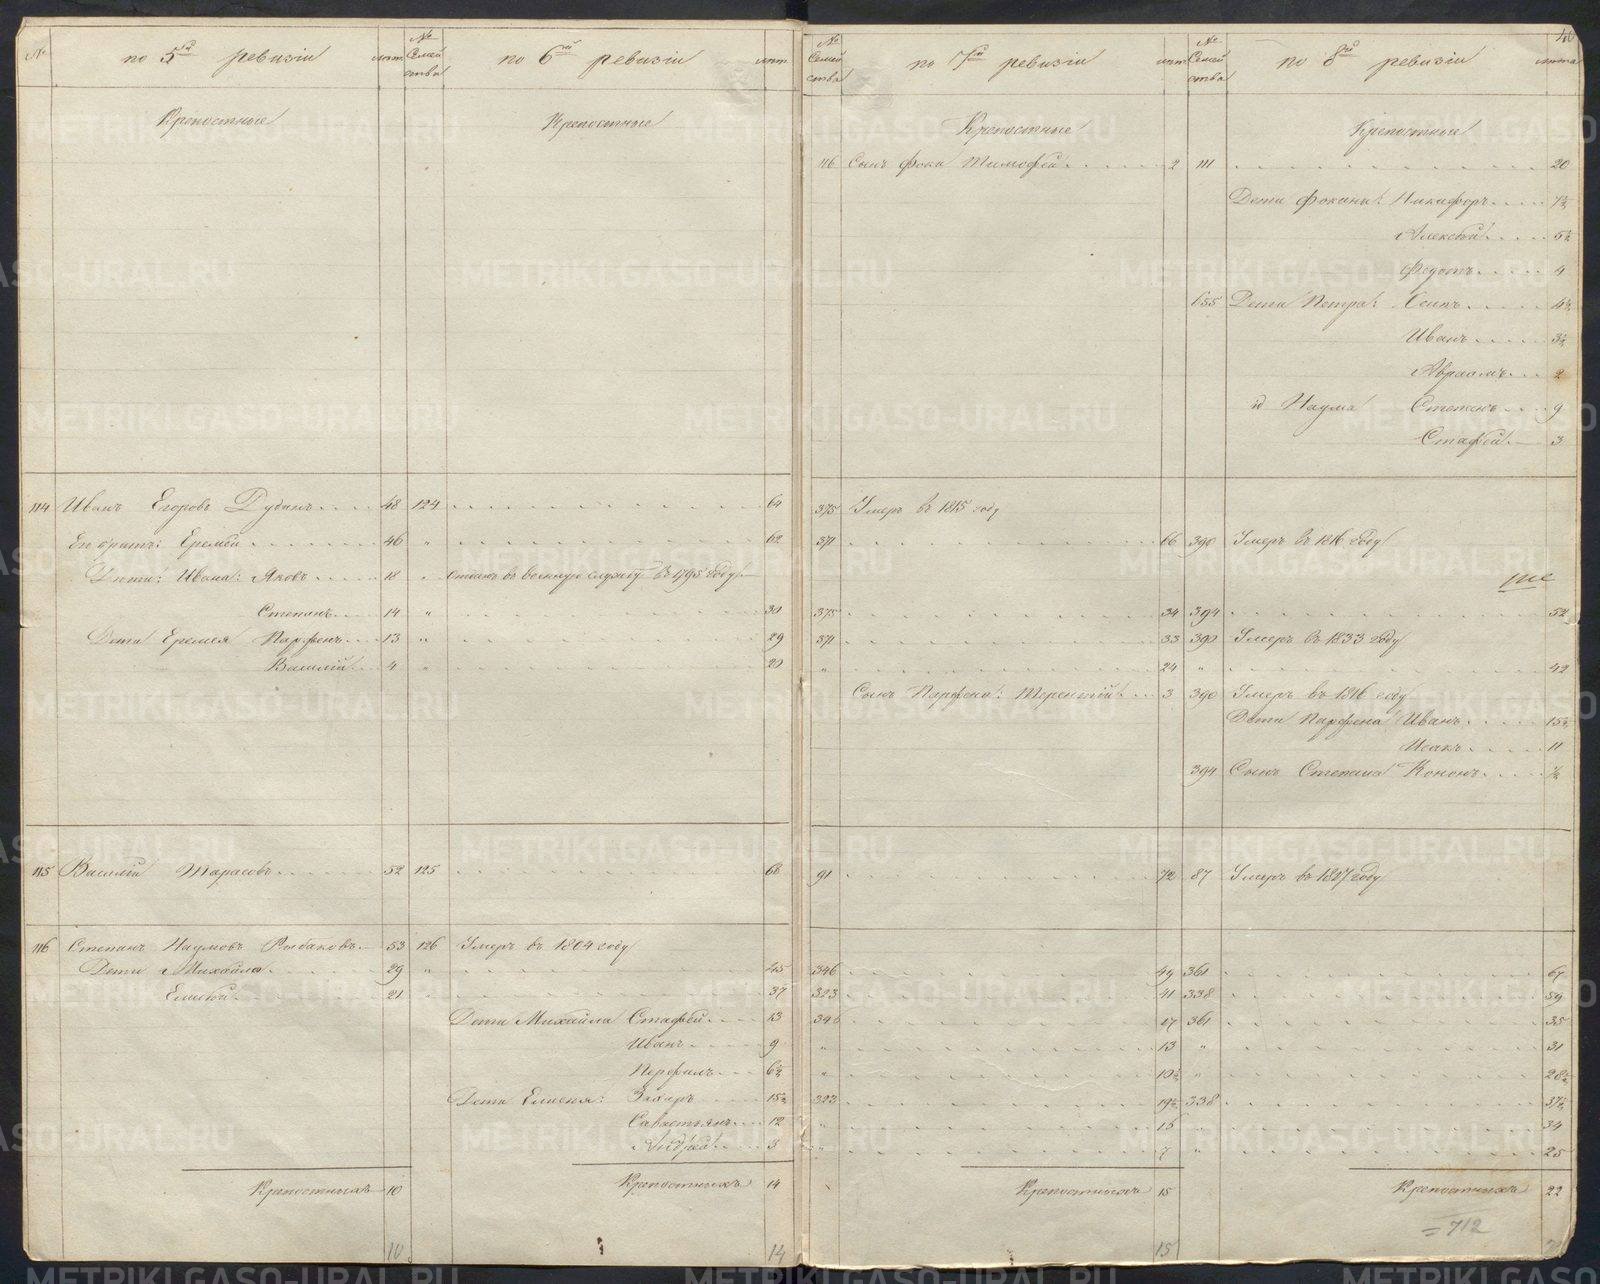 № по 5й ревизіи лѣта № Семейства по 6й ревизіи лѣта № Семейства по 7й ревизіи лѣта № Семейства по 8й ревизіи лѣта
Крѣпостные Крѣпостные Крѣпостные Крѣпостные
116 Сынъ Фоки Тимофей 2 111 20
Дети Фокины: Никифоръ 7½
Алексѣй 5½
Федотъ 4
655 Дети Петра: Осипъ 4½
Иванъ 3½
Авраамъ 2
id Наума Степанъ 9
Стафѣй 3
114 Иванъ Егоровъ Дубинъ 48 124 64 375 Умеръ въ 1815 году
Ево братъ: Еремѣй 46 " 62 371 66 390 Умеръ въ 1816 году
Дѣти: Ивана: Яковъ 18 " Отданъ въ военную службу въ 1795 году
Степанъ 14 " 30 375 34 394 52
Дети Еремея Парфенъ 13 " 29 371 33 390 Умеръ въ 1833 году
Василій 4 " 20 " 24 " 42
Сынъ Парфена: Терентій 3 390 Умеръ въ 1816 году
Дети Парфена Иванъ 15½
Исакъ 11
394 Сынъ Степана Кононъ ½
115 Василій Тарасовъ 52 125 68 91 72 87 Умеръ въ 1817 году
116 Степанъ Наумовъ Рыбаковъ 53 126 Умеръ въ 1804 году
Дети Михайла 29 " 45 346 49 361 67
Елисѣй 21 " 37 323 41 338 59
Дети Михайла Стафѣй 13 346 17 361 35
Иванъ 9 " 13 " 31
Перфилъ 6½ " 10½ " 28½
Дети Елисея: Захаръ 15½ 323 19½ 338 37½
Савастьянъ 12 " 16 " 34
Андрей 3 " 7 " 25
Крѣпостныхъ 10 Крѣпостныхъ 14 Крѣпостныхъ 15 Крѣпостныхъ 22
=712
10 14 15
METRIKI.GASO-URAL.RU